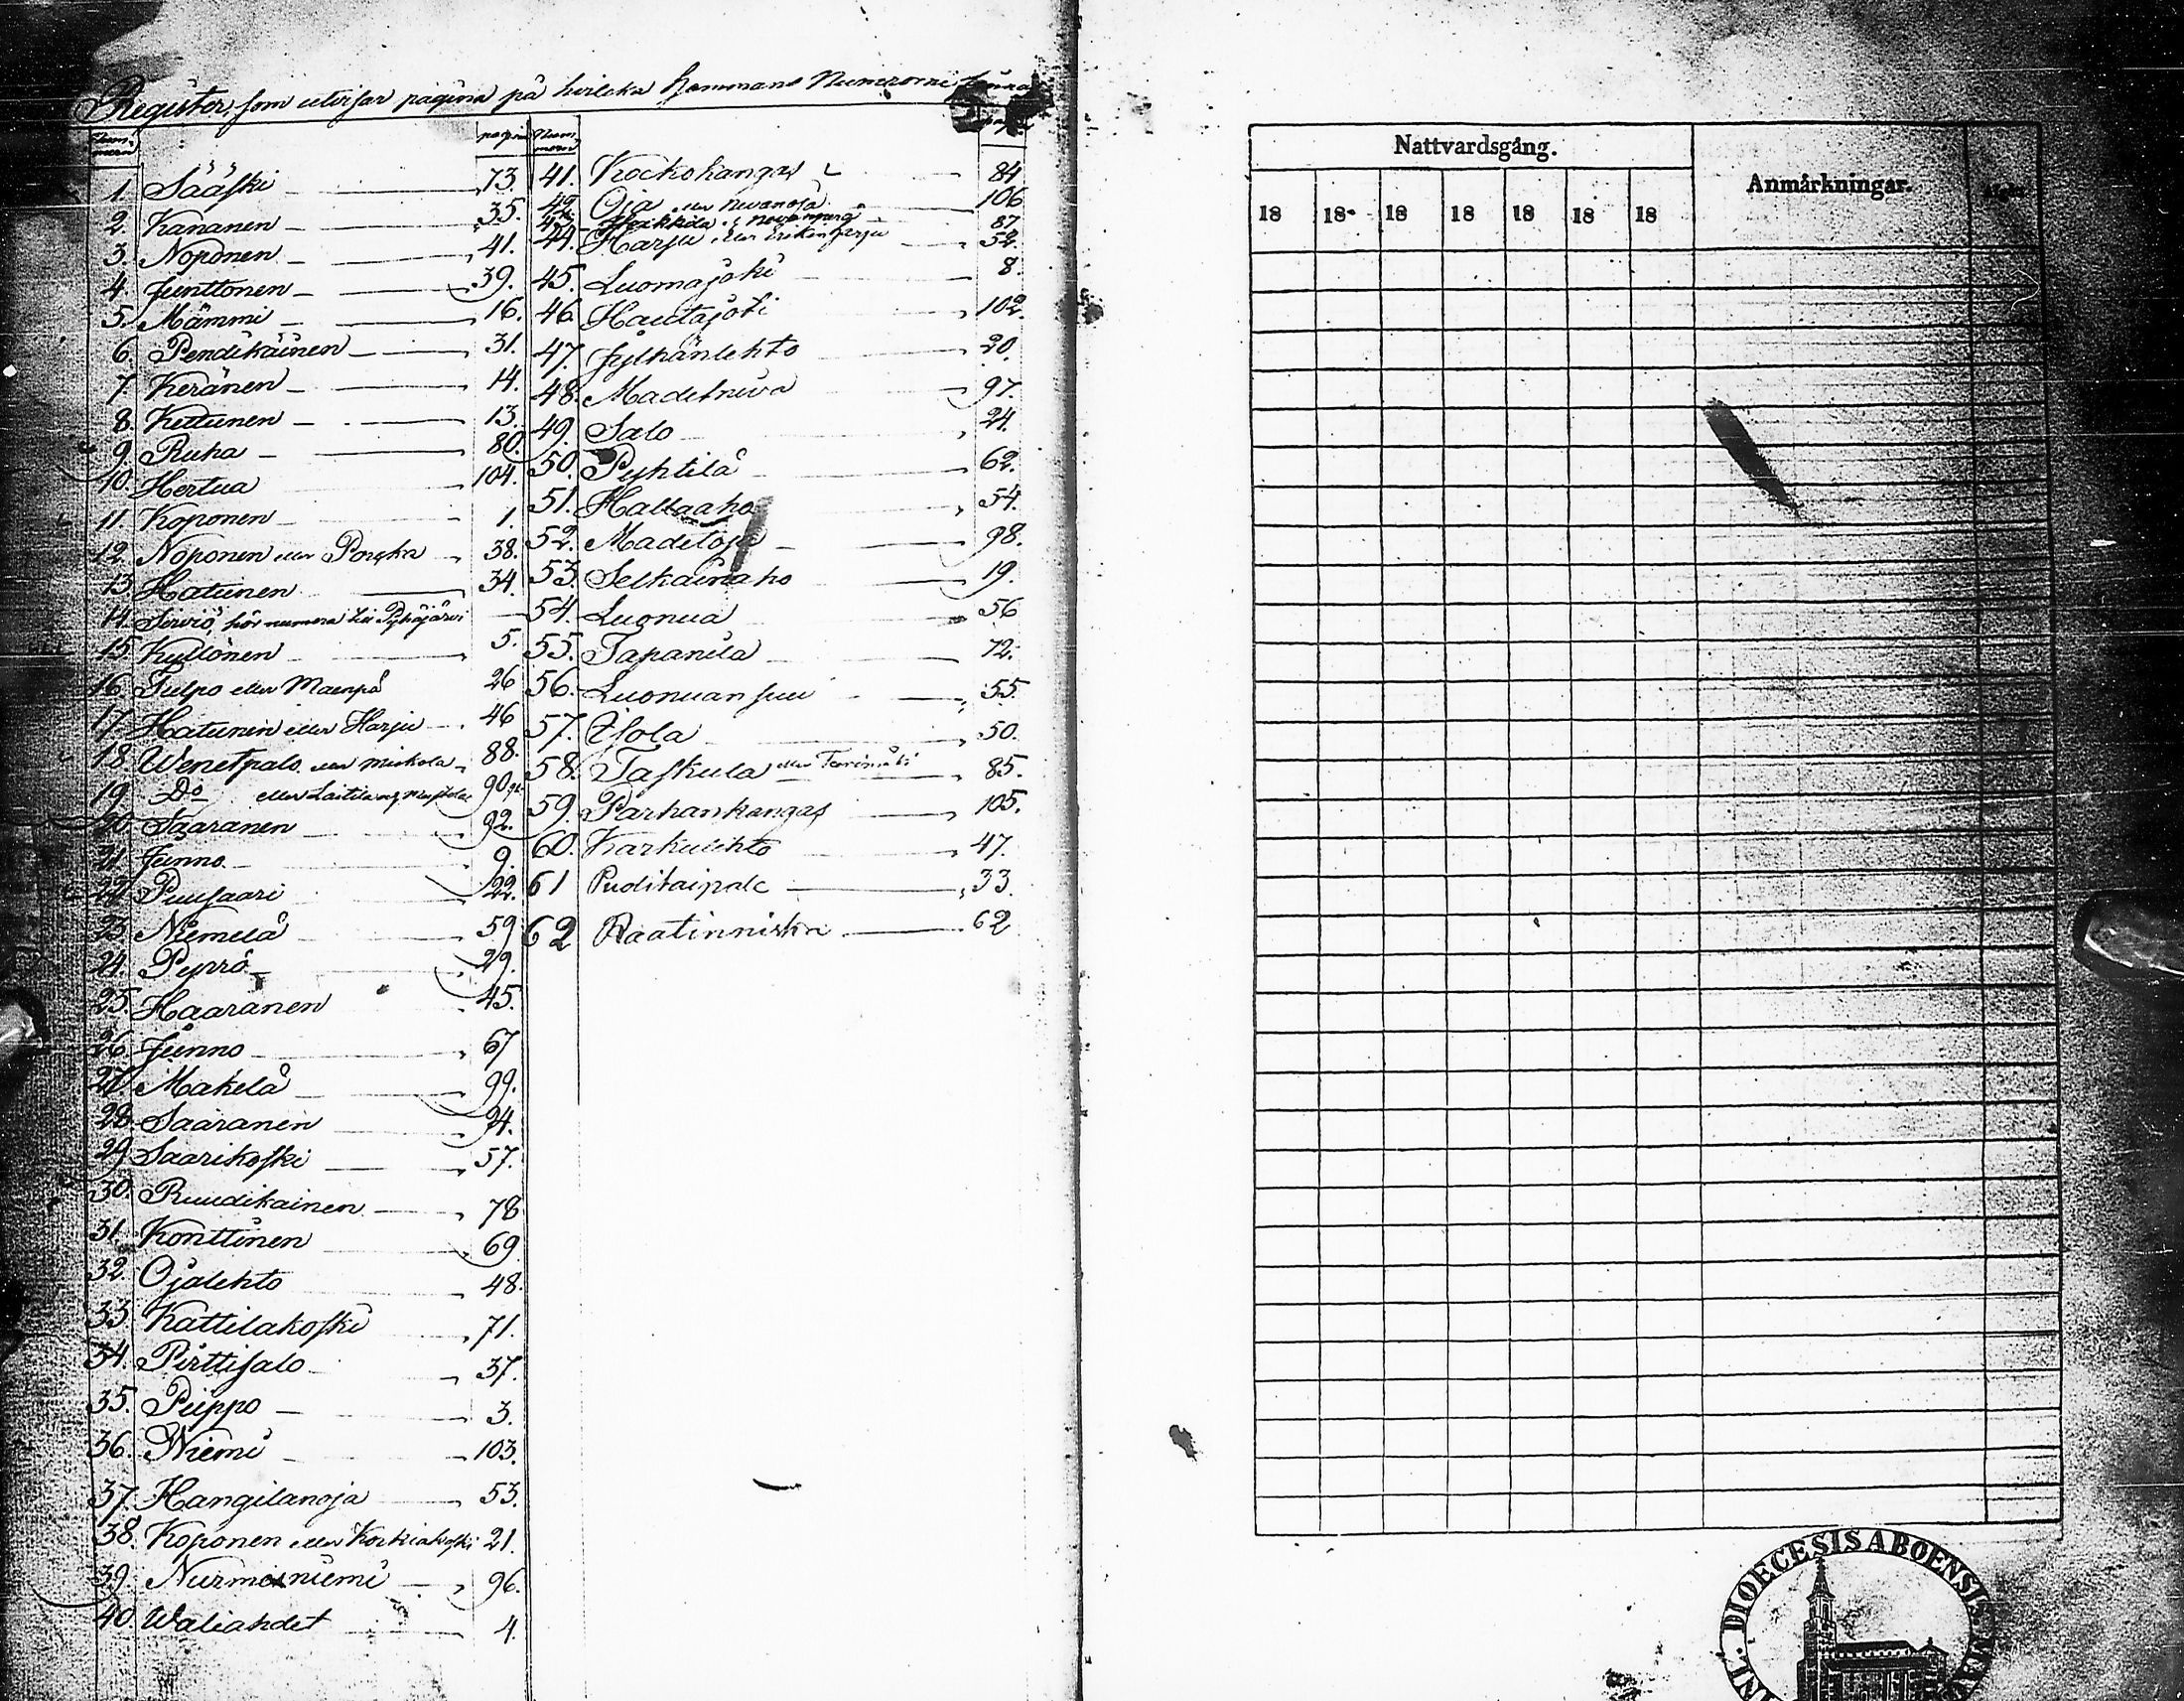 Register, som utvisar pagina på hvilcka Hemmans Numrorne finnas
Num-
mern
pagina
1. Sääski 73.
2. Kananen 35.
3. Noponen 41.
4. Junttonen 39.
5. Mämmi 16.
6. Pendikäinen 31.
7. Keränen 14.
8. Kettunen 13.
9. Ruha 80.
10. Hertua 104.
11. Koponen 1.
12. Noponen eller Poncka 38.
13. Hatunen 34.
14. Serviö, hör numera till Pyhäjärvi
15. Kyllönen 5.
16. Tulpo eller Maenpå 26
17. Hatunen eller Harju 46
18. Wenetpalo eller Miskola 88.
19. Do eller Laitila 90
20. Saaranen 92.
21. Junno 9.
22. Puusaari 22.
23. Niemelå 59
24. Pyrrö 29.
25. Haaranen 45.
26. Junno 67
27. Makelå 99.
28. Saaranen 94.
29. Saarikoski 57.
30. Ruudikainen 78
31. Konttinen 69
32. Ojalehto 48.
33. Kattilakoski 71.
34. Pirttisalo 37.
35. Piippo 3.
36. Niemi 103.
37. Hangilanoja 53.
38. Koponen eller Korkiakoski 21.
39. Nurmesniemi 96.
40. Waliahdet 4.
Num-
mern
pagina
41. Kockokangas 84
42. Oja eller Nevanoja 106
Hakkila 87
44. Harju eller Erikinharju 52.
45. Luomajoki 8.
46. Hautajoki 102.
47. Jylhänlehto 20.
48. Madetneva 97.
49. Salo 24.
50. Pyhtilå 62.
51. Hallaaho 54.
52. Madetoja 98.
53. Selkäinaho 19.
54. Luonua 56
55. Tapanila 72.
56. Luonuansuu 55.
57. Isola 50.
58. Taskula eller 85.
59. Parhankangas 105.
60. Karkulehto 47.
61 Puolitaipale 33.
62 Raatinniska 62
Nattvardsgång.
Anmärkningar.
18 18 18 18 18 18 18
DIOECESIS ABOENSIS